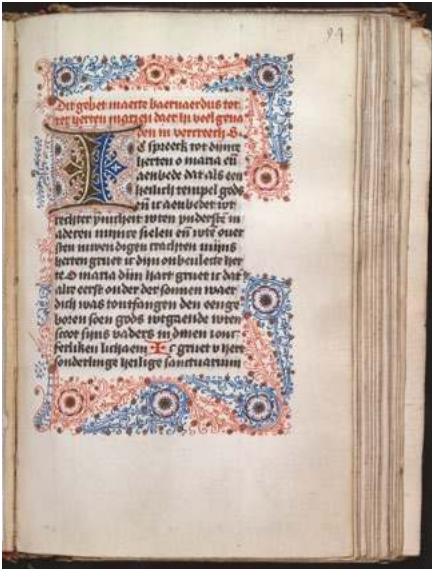 94
Dit gebet maecte baernaerdus tot
ter herten marien daer hi veel gena
den in vercreech S.
IC spreek tot dinre
herten o maria eñ
aenbede dat als een
heilich tempel gods
eñ ic aenbedet wt
rechter
aderen mijnre sielen eñ wte
sten inwendigen crachten mijns
herten gruet ic dijn onbeulecte her
te O maria dijn hart gruet ic dat
alre eerst onder der sonnen waer
dich was tontfangen den eenge
boren soen gods wtgaende wten
scoot sijns vaders in dinen ionc
ferliken lichaem Ic gruet v hert
sonderlinge heilige sanctuarium